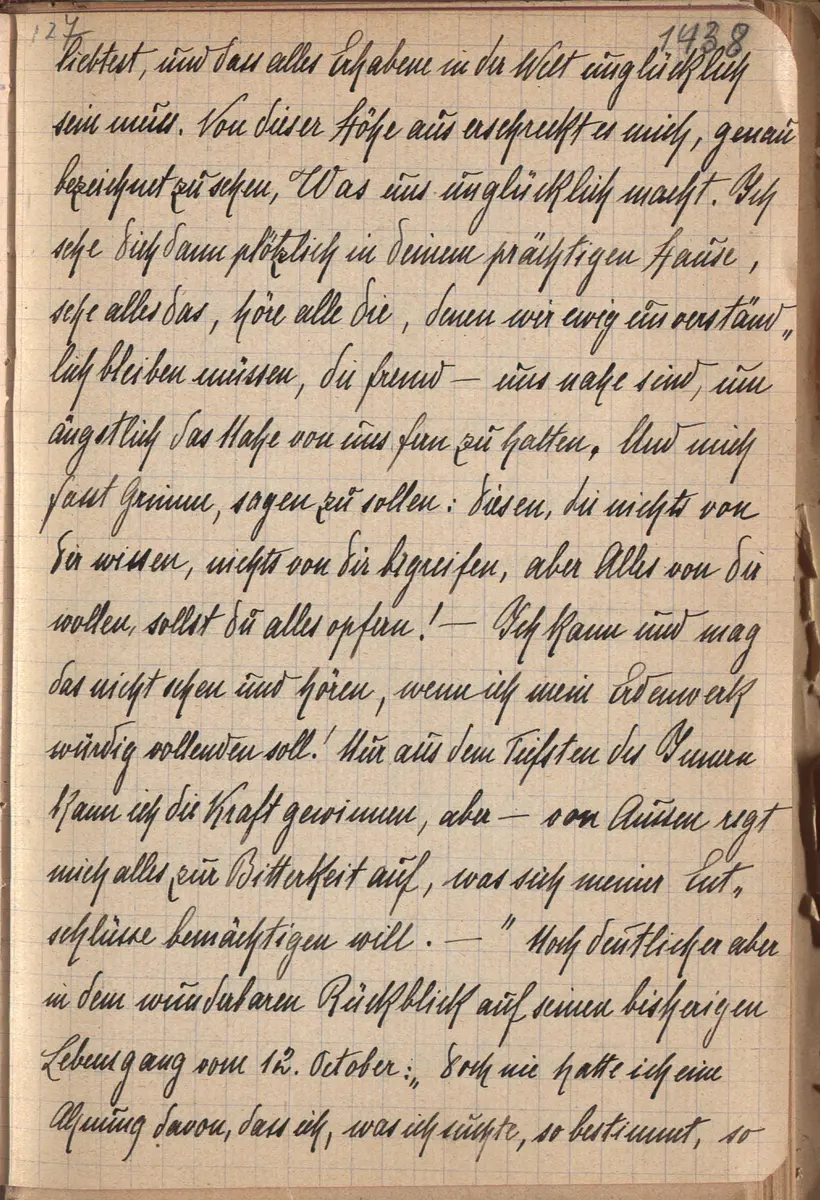 127 1438
liebtest, und dass alles Erhabene in der Welt unglücklich
sein muss. Von dieser Höhe aus erschreckt es mich, genau
bezeichnet zu sehen, Was uns unglücklich macht. Ich
sehe dich dann plötzlich in deinem prächtigen Hause,
sehe alles das, höre alle die, denen wir ewig unverständ„
lich bleiben müssen, die fremd — uns nahe sind, um
ängstlich das Nahe von uns fern zu halten. Und mich
fasst Grimm, sagen zu sollen: diesen, die nichts von
dir wissen, nichts von dir begreifen, aber Alles von dir
wollen, sollst du alles opfern! — Ich kann und mag
das nicht sehen und hören, wenn ich mein Erdenwerk
würdig vollenden soll! Nur aus dem Tiefsten des Innern
kann ich die Kraft gewinnen, aber — von Aussen regt
mich alles zur Bitterkeit auf, was sich meiner Ent„
schlüsse bemächtigen will. — " Noch deutlicher aber
in dem wunderbaren Rückblick auf seinen bisherigen
Lebensgang vom 12. October: „ Doch nie hatte ich eine
Ahnung davon, dass ich, was ich suchte, so bestimmt, so